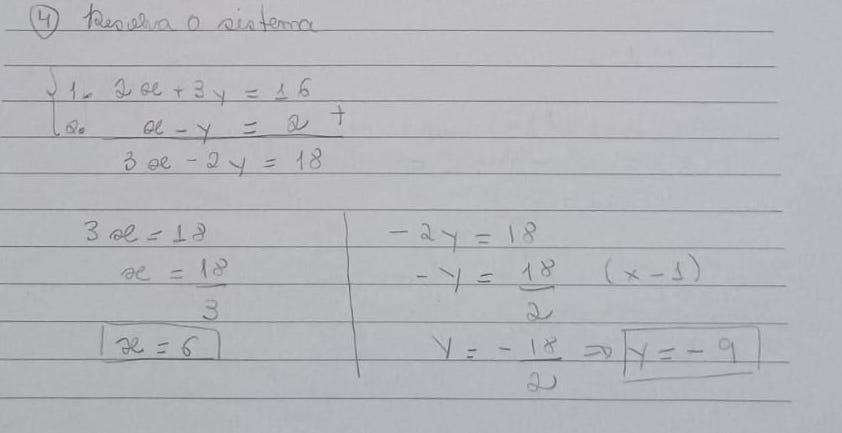 4 Resolva o sistema
1. 2x + 3y = 16
2. x - y = 2 +
3x - 2y = 18
3x = 18
x = 18/3
x = 6
- 2y = 18
- y = 18/2 (x - 1)
y = - 18/2 => y = - 9